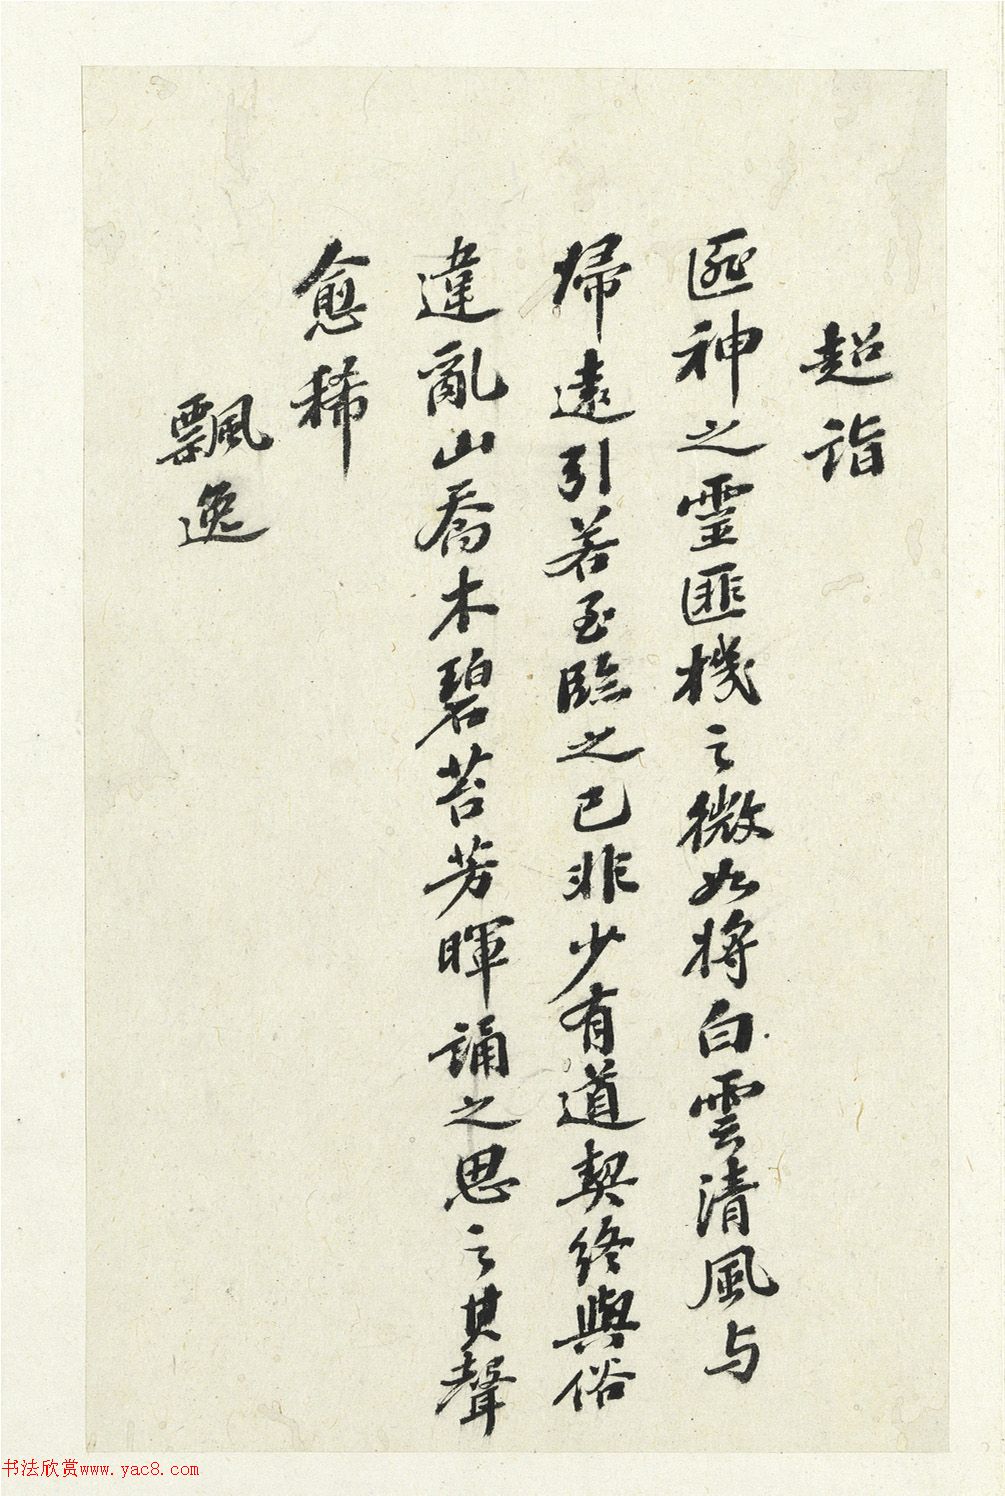 超詣
匪神之靈匪機之微如將白雲清風与
歸遠引若至臨之已非少有道契終與俗
違亂山喬木碧苔芳暉誦之思之其聲
愈稀
飄逸
书法欣赏www.yac8.com